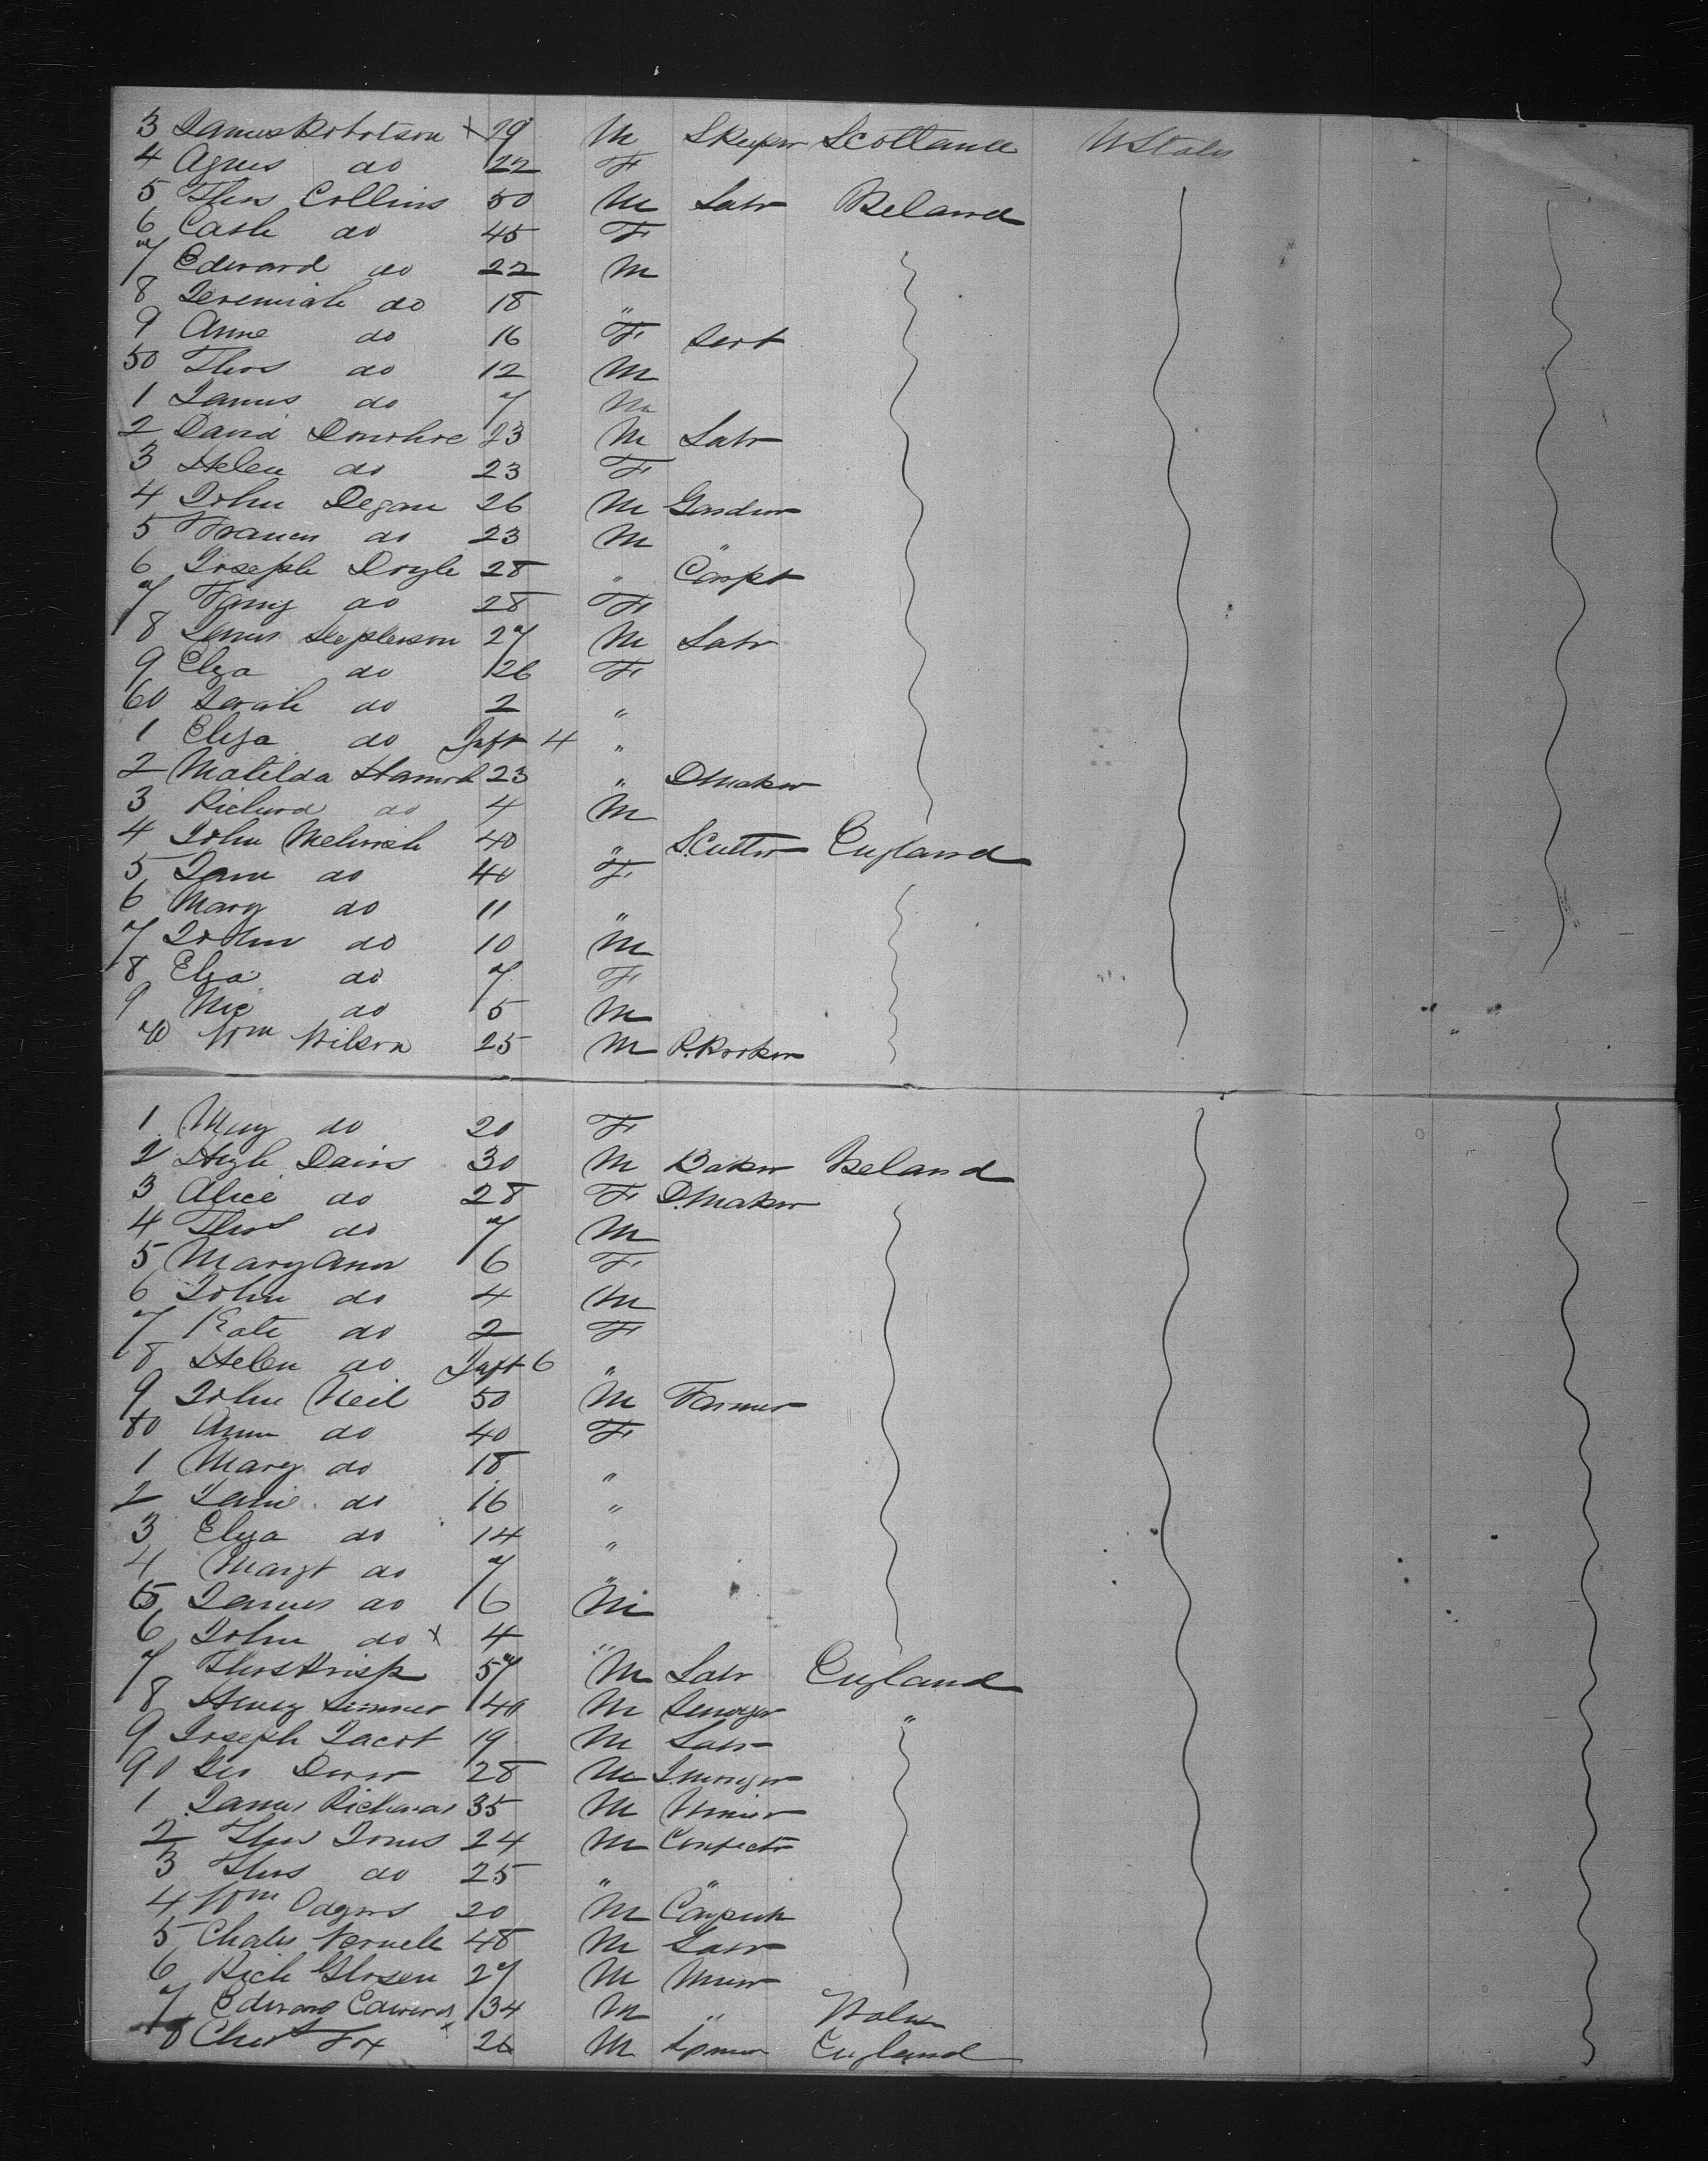 3 James Robertson x 29 M SKeeper Scotland U States
4 Agnes do 22 F
5 Thos Collins 50 M Labr Ireland
6 Cath do 45 F
7 Edward do 22 M
8 Jeremiah do 18 "
9 Anne do 16 F Servt
50 Thos do 12 M
1 James do 7 M
2 David Donohoe 23 M Labr
3 Helen do 23 F
4 John Degan 26 M Gardner
5 Francis do 23 M "
6 Joseph Doyle 28 " Carpt
7 Fanny do 28 F
8 James Stephenson 27 M Labr
9 Eliza do 26 F
60 Sarah do 2 "
1 Eliza do Inft 4 "
2 Matilda 23 " DMaker
3 Richard do 4 M
4 John 40 " S.Cutter England
5 Jane do 40 F
6 Mary do 11 "
7 John do 10 M
8 Eliza do 7 F
9 do 5 M
70 Wm Wilson 25 M
1 Mary do 20 F
2 Hugh Davis 30 M Baker Ireland
3 Alice do 28 F D.Maker
4 Thos do 7 M
5 Mary Ann 6 F
6 John do 4 M
7 Kate do 2 F
8 Helen do Inft 6 "
9 John Neil 50 M Farmer
80 Anne do 40 F
1 Mary do 18 "
2 Janie do 16 "
3 Eliza do 14 "
4 Margt do 7 "
5 James do 6 M
6 John do x 4 "
7 Thos Krisp 57 M Labr England
8 Henry 40 M "
9 Joseph Jacot 19 M Labr
90 Geo 28 M I.monger
1 James Richards 35 M
2 Thos Jones 24 M Confectr
3 Thos do 25 " "
4 Wm Odgers 20 M
5 Chales 48 M Labr
6 Rich 27 M Miner
7 Edward Edwards x 34 M " Wales
8 Fox 26 M England